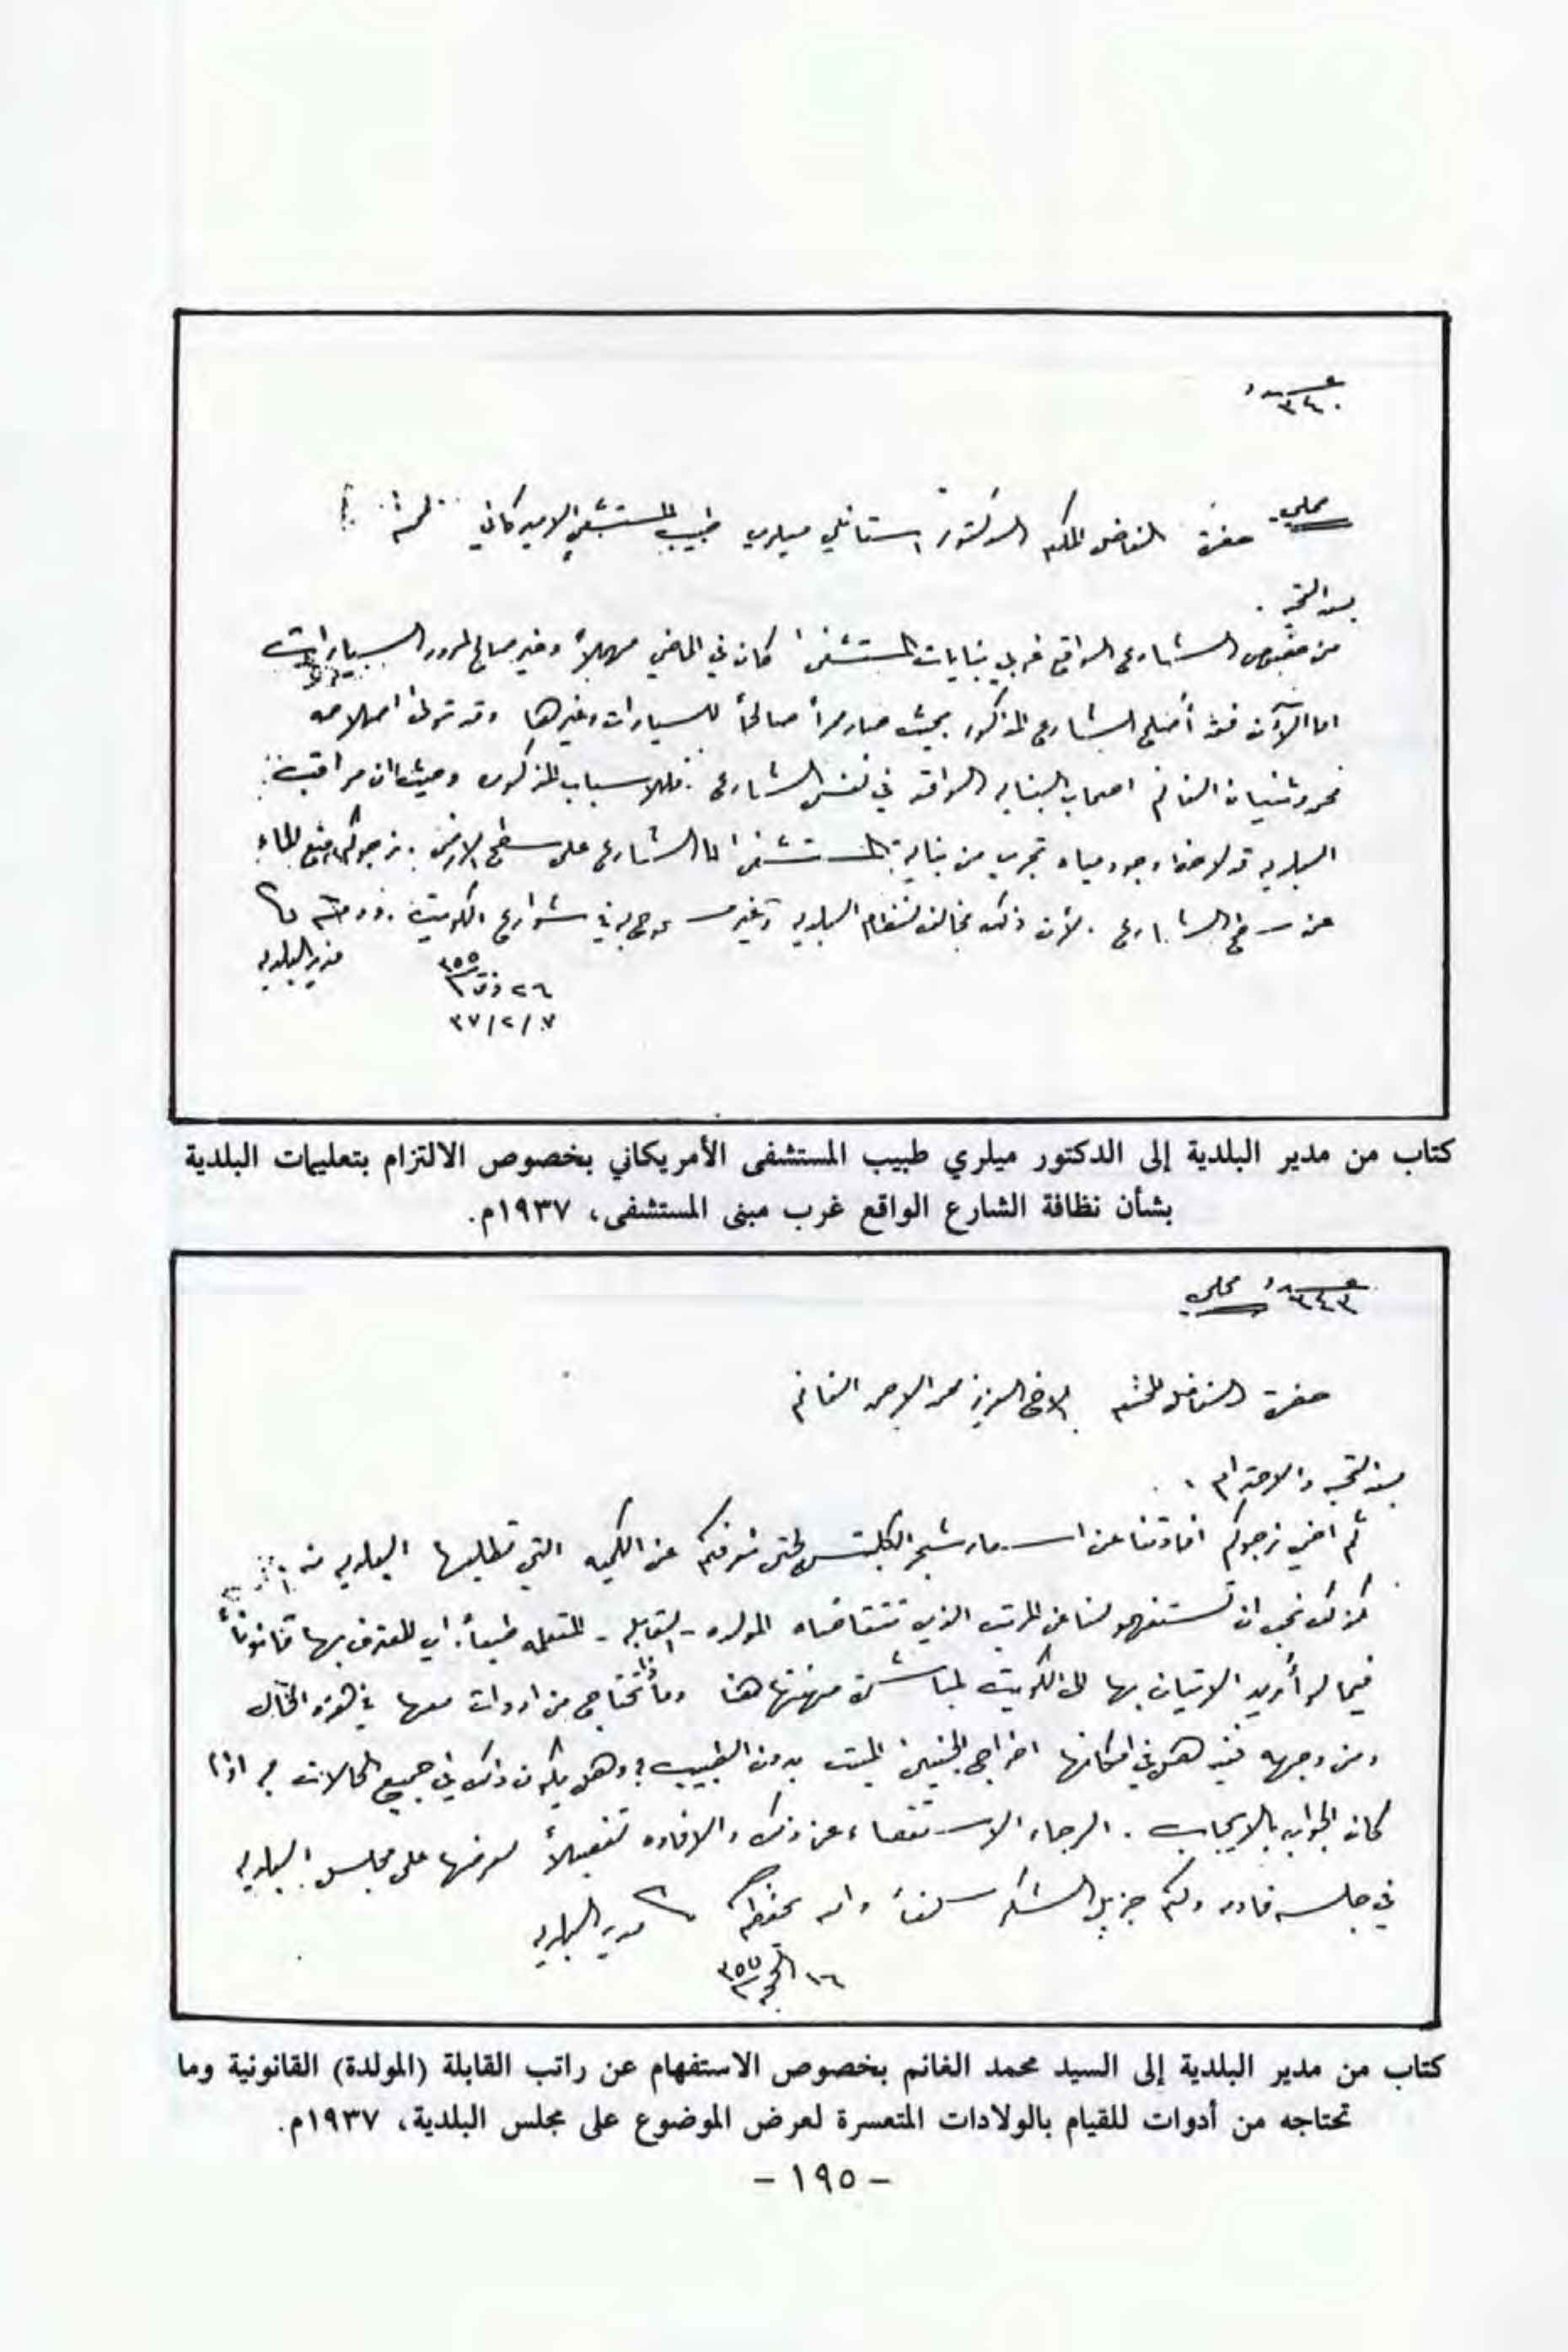 عدد
٣٤٠
محلي
حضرة الفاضل المكرم الدكتور استانلي ميلري طبيب المستشفى الاميركاني
بعد التحية .
من خصوص الشارع الواقع غربي بنايات المستشفى كان في الماضي مهملاً وغير صالح لمرور السيارات
اما الآن فقد أصلح الشارع المذكور بحيث صار ممراً صالحاً للسيارات وغيرها وقد تولى اصلاحه
محمد وثنيان الغانم اصحاب البنايه الواقعه في نفس الشارع . فللاسباب المذكوره وحيث ان مراقب
البلديه قد لاحظ وجود مياه تجري من بناية المستشفى الى الشارع على سطح الارض . نرجوكم رفع الماء
عن سطح الشارع . لأن ذلك مخالف لنظام البلديه وغير مسموح به في شوارع الكويت . ودمتم
مدير البلديه
٢٦ ذق ٣٥٥
٣٧/٢/٧
كتاب من مدير البلدية إلى الدكتور ميلري طبيب المستشفى الأمريكاني بخصوص الالتزام بتعليمات البلدية
بشأن نظافة الشارع الواقع غرب مبنى المستشفى، ١٩٣٧م.
عدد محلي
٣٤٣
حضرة الفاضل المحتشم الاخ العزيز محمد الاحمد الغانم
بعد التحيه والاحترام .
ثم اخي نرجوكم افادتنا عن اسعار شجر الكلبتس لحتى نعرفكم عن الكميه التي تطلبها البلديه منه
كذلك نحب ان تستفهمو لنا عن المرتب الذي تتقاضاه المولده - القابله - المتعلمه طبياً . اي المعترف بها قانوناً
فيما لو أريد الاتيان بها الى الكويت لمباشرة مهنتها هنا وماذا تحتاج من ادوات معها في هذه الحال
ومن وجهه فنيه هل في امكانها اخراج الجنين الميت بدون الطبيب ؟ وهل يكون ذلك في جميع الحالات اذا
كان الجواب بالايجاب . الرجاء الاستقصاء عن ذلك والافاده تفصيلاً لعرضها على مجلس البلديه
في جلسه قادمه ولكم جزيل الشكر سلفاً والله يحفظكم مدير البلديه
١٦ الحجه ٣٥٥
كتاب من مدير البلدية إلى السيد محمد الغانم بخصوص الاستفهام عن راتب القابلة (المولدة) القانونية وما
تحتاجه من أدوات للقيام بالولادات المتعسرة لعرض الموضوع على مجلس البلدية، ١٩٣٧م.
- ١٩٥ -